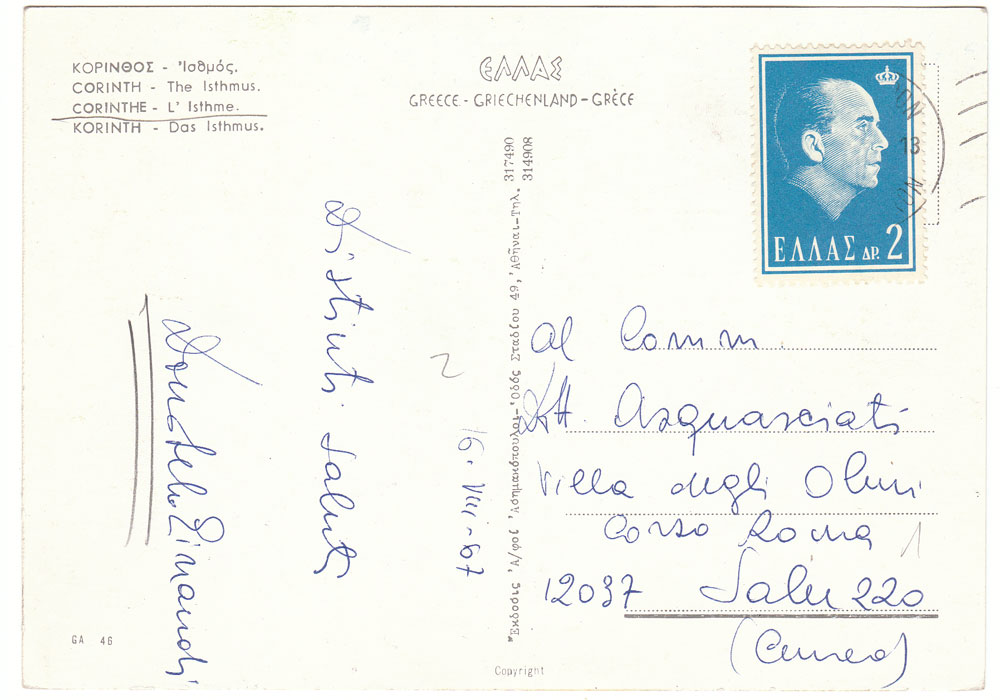 ΚΟΡΙΝΘΟΣ - Ἰσθμός.
CORINTH - The Isthmus.
CORINTHE - L' Isthme.
KORINTH - Das Isthmus.
ΕΛΛΑΣ
GREECE - GRIECHENLAND - GRÈCE
ΕΛΛΑΣ ΔΡ. 2
13
Distinti saluti
16-VIII-67
Ἔκδοσις Ἀ/φοί Ἀσημακόπουλοι-Ὁδός Σταδίου 49, Ἀθῆναι-Τηλ. 317490
314908
al Comm
Dott Asquasciati
Villa degli Olivi
Corso Roma 1
12037 Saluzzo
(Cuneo)
GA 46
Copyright